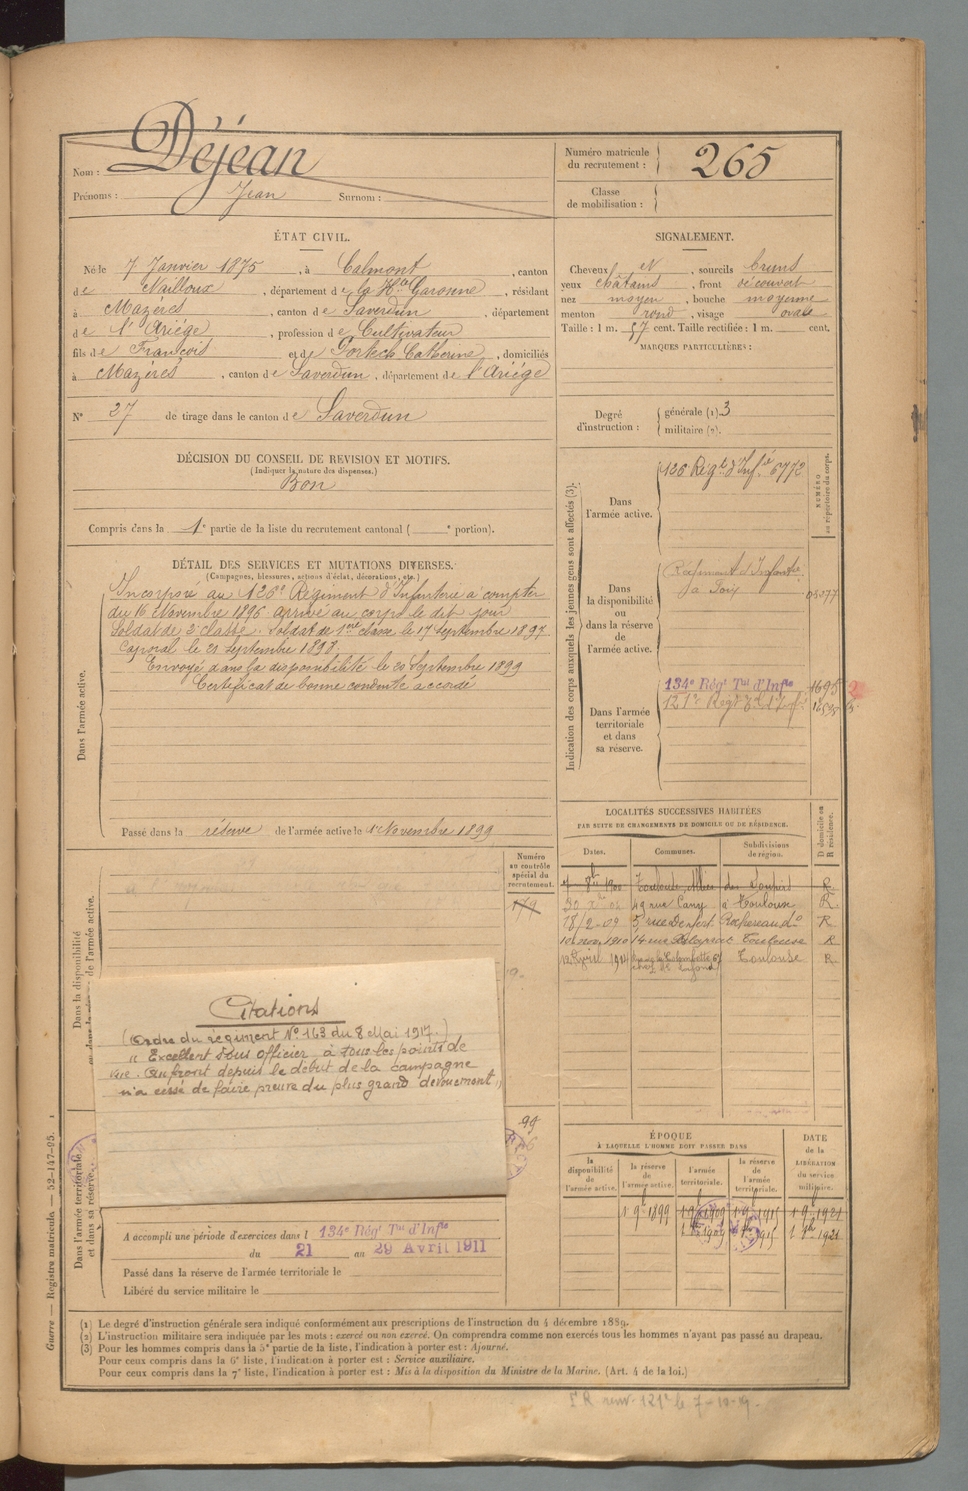 Nom : Déjean
Prénoms : Jean Surnom :
Numéro matricule
du recrutement : 265
Classe
de mobilisation :
ÉTAT CIVIL.
Né le 7 Janvier 1875, à Calmont, canton
de Nailloux, département de la Hte Garonne, résidant
à Mazères, canton de Saverdun, département
de l'Ariége, profession de Cultivateur
fils de François et de Portech Catherine, domiciliés
à Mazères, canton de Saverdun, département de l'Ariége
N° 27 de tirage dans le canton de Saverdun
SIGNALEMENT.
Cheveux et, sourcils bruns
yeux châtains, front découvert
nez moyen, bouche moyenne
menton rond, visage ovale
Taille : 1 m. 57 cent. Taille rectifiée : 1 m. cent.
MARQUES PARTICULIÈRES :
Degré
d'instruction :
générale (1). 3
militaire (2).
DÉCISION DU CONSEIL DE REVISION ET MOTIFS.
(Indiquer la nature des dispenses.)
Bon
Compris dans la 1e partie de la liste du recrutement cantonal ( e portion).
DÉTAIL DES SERVICES ET MUTATIONS DIVERSES.
(Campagnes, blessures, actions d'éclat, décorations, etc.)
Dans l'armée active.
Incorporé au 126e Régiment d'Infanterie à compter
du 16 Novembre 1896 arrivé au corps le dit jour
Soldat de 2e classe. Soldat de 1ere classe le 17 Septembre 1897.
Caporal le 21 Septembre 1898.
Envoyé dans la disponibilité le 20 Septembre 1899
Certificat de bonne conduite accordé
Passé dans la réserve de l'armée active le 1er Novembre 1899
Indication des corps auxquels les jeunes gens sont affectés (3).
NUMÉRO
au répertoire du corps.
Dans
l'armée active.
126 Régt d'Infie 6772
Dans
la disponibilité
ou
dans la réserve
de
l'armée active.
Régiment d'Infanterie
de Foix
Dans l'armée
territoriale
et dans
sa réserve.
134e Régt Tal d'Infie 1695
LOCALITÉS SUCCESSIVES HABITÉES
PAR SUITE DE CHANGEMENTS DE DOMICILE OU DE RÉSIDENCE.
D domicile ou
R résidence.
Dates. Communes. Subdivisions
de région.
Toulouse, R
49 rue à Toulouse R
18/2-09 5 rue Denfert Rochereau do R
10 nov 1910 14 rue Toulouse R
Toulouse R
Numéro
au contrôle
spécial du
recrutement.
179
Dans la disponibilité
Citations
(Ordre du régiment N° 143 du 8 Mai 1917.)
"Excellent sous officier à tous les points de
vue. Au front depuis le début de la campagne
n'a cessé de faire preuve du plus grand dévouement"
ÉPOQUE
À LAQUELLE L'HOMME DOIT PASSER DANS
la
disponibilité
de
l'armée active.
la réserve
de
l'armée active.
l'armée
territoriale.
la réserve
de
l'armée
territoriale.
DATE
de la
LIBÉRATION
du service
militaire.
Dans l'armée territoriale
et dans sa réserve.
A accompli une période d'exercices dans l 134e Régt Tal d'Infie
du 21 au 29 Avril 1911
Passé dans la réserve de l'armée territoriale le
Libéré du service militaire le
(1) Le degré d'instruction générale sera indiqué conformément aux prescriptions de l'instruction du 4 décembre 1889.
(2) L'instruction militaire sera indiquée par les mots : exercé ou non exercé. On comprendra comme non exercés tous les hommes n'ayant pas passé au drapeau.
(3) Pour les hommes compris dans la 5e partie de la liste, l'indication à porter est : Ajourné.
Pour ceux compris dans la 6e liste, l'indication à porter est : Service auxiliaire.
Pour ceux compris dans la 7e liste, l'indication à porter est : Mis à la disposition du Ministre de la Marine. (Art. 4 de la loi.)
Guerre — Registre matricule. — 52-147-95.